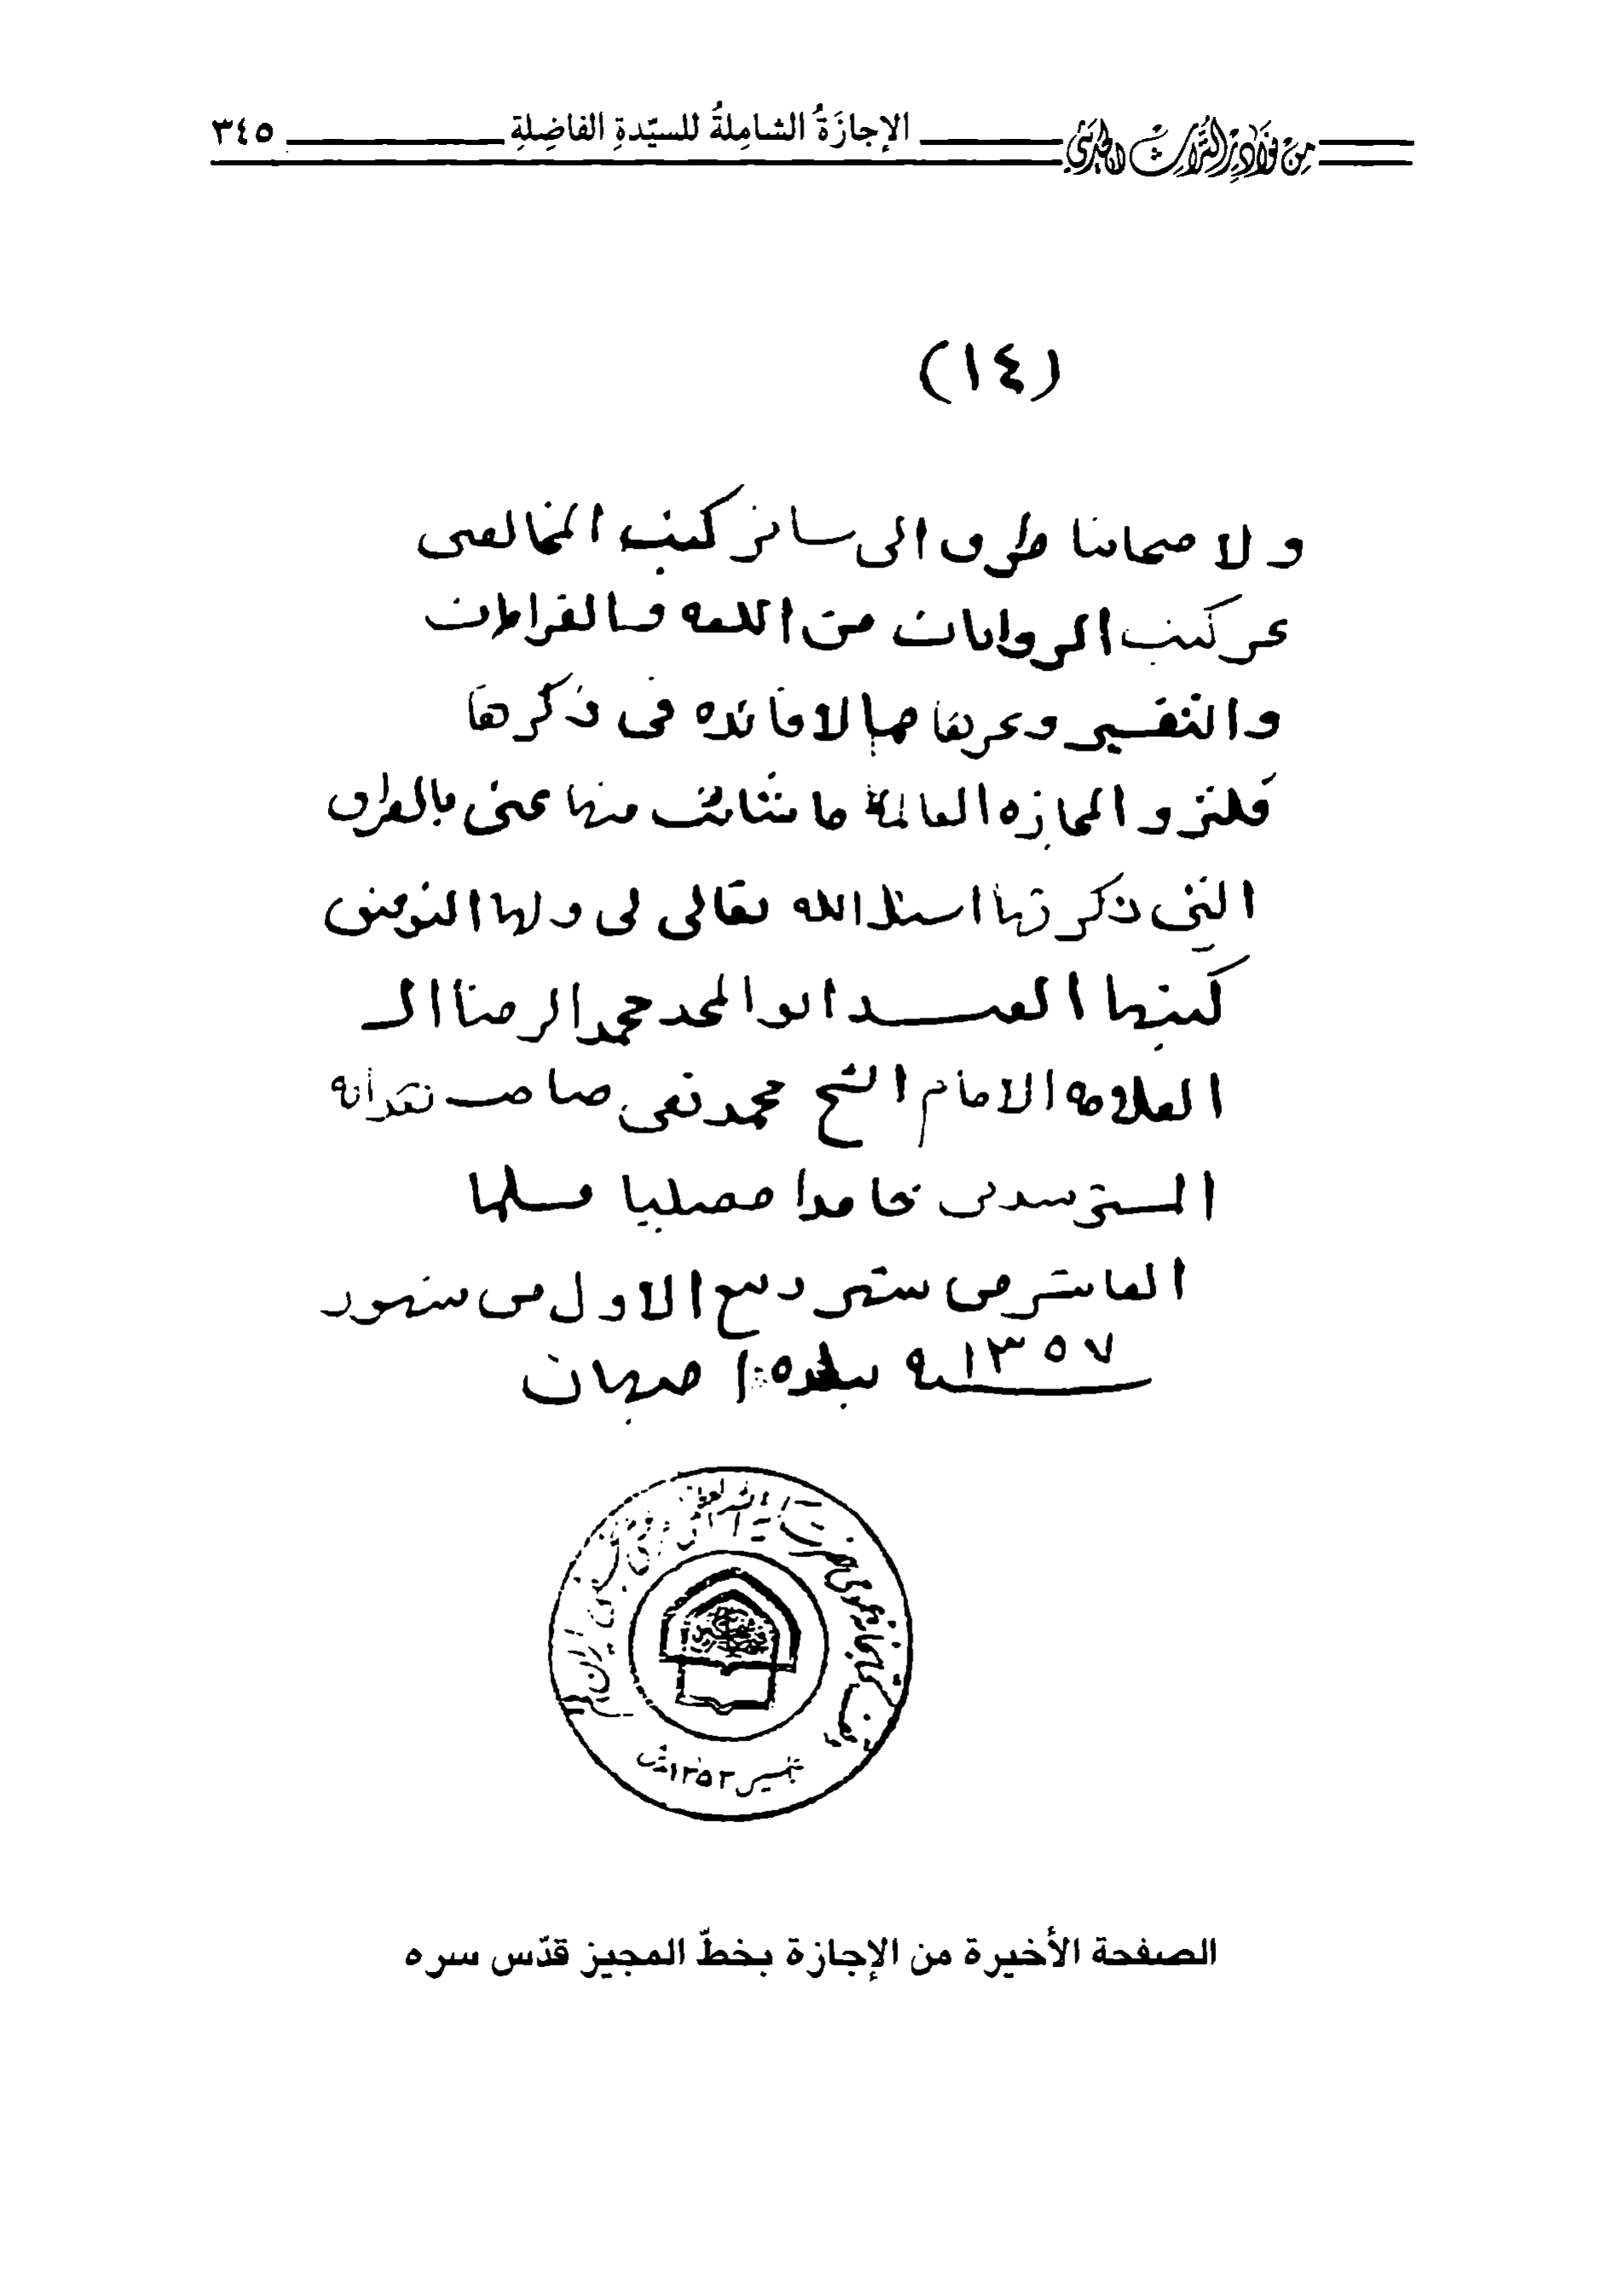 من نوادر التراث الحديثي الإجازَةُ الشامِلةُ للسيّدةِ الفاضِلةِ ٣٤٥
(١٤)
ولاصحابنا طرق الى سائر كتب المخالفين
غير كتب الروايات من اللغه والقراءات
والتفسير وغيرها مما لا فائده في ذكرها
فلترو المجازه العالمة ما شائت منها عني بالطرق
التي ذكرتها اسئل الله تعالى لي ولها التوفيق
كتبها العبد ابو المجد محمد الرضا ال
العلامه الامام الشيخ محمد تقي صاحب
المسترشدين حامدا مصليا مسلما
العاشر من شهر ربيع الاول من شهور
سنه ١٣٥٧ ببلده اصبهان
١٣٥٢
الصفحة الأخيرة من الإجازة بخطّ المجيز قدّس سره